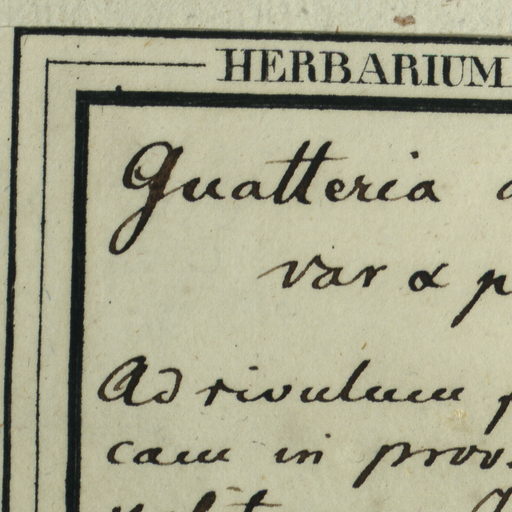 HERBARIUM
Guatteria
var α
Ad rivulum
cam in prov.